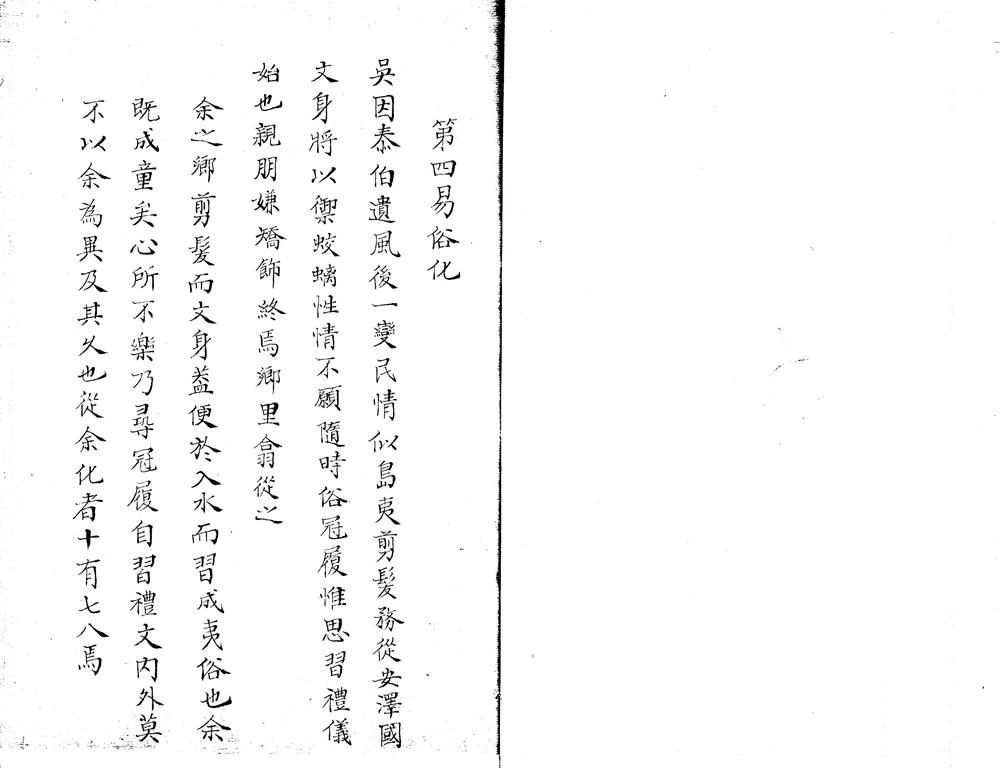 第四易俗化
吳因泰伯遺風後一變民情似島夷剪髮務從安澤國
文身將以禦蛟螭性情不願隨時俗冠履惟思習禮儀
始也親朋嫌矯飾終焉鄉里翕從之
余之鄉剪髮而文身蓋便於入水而習成夷俗也余
既成童矣心所不樂乃尋冠履自習禮文內外莫
不以余為異及其久也從余化者十有七八焉